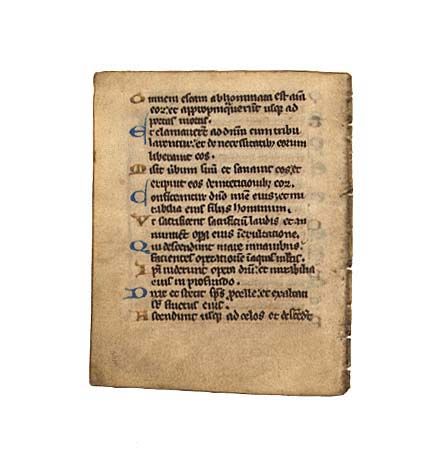 Omnem escam abhominata est aīa
eor: et appropinquerunt usq; ad
portas mortis.
Et clamauerūt ad dn̄m cum tribu
larentur: et de necessitatibȝ eorum
liberauit eos.
Misit ūbum suū et sanauit eos: et
eripuit eos de interitionibȝ eor.
Confiteantur dn̄o mīe eius: et mi
rabilia eius filiis hominum.
Ut sacrificent sacrificiū laudis et an
nuntiēt opa eius ī exultatione.
Qui descendunt mare in nauibus:
facientes operationē ī aquis multis.
Ipsi uiderunt opera dn̄i: et mirabilia
eius in profundo.
Dixit et stetit sp̄s procelle: et exaltati
sūt fluctus eius.
Ascendunt usq; ad celos et descēdūt